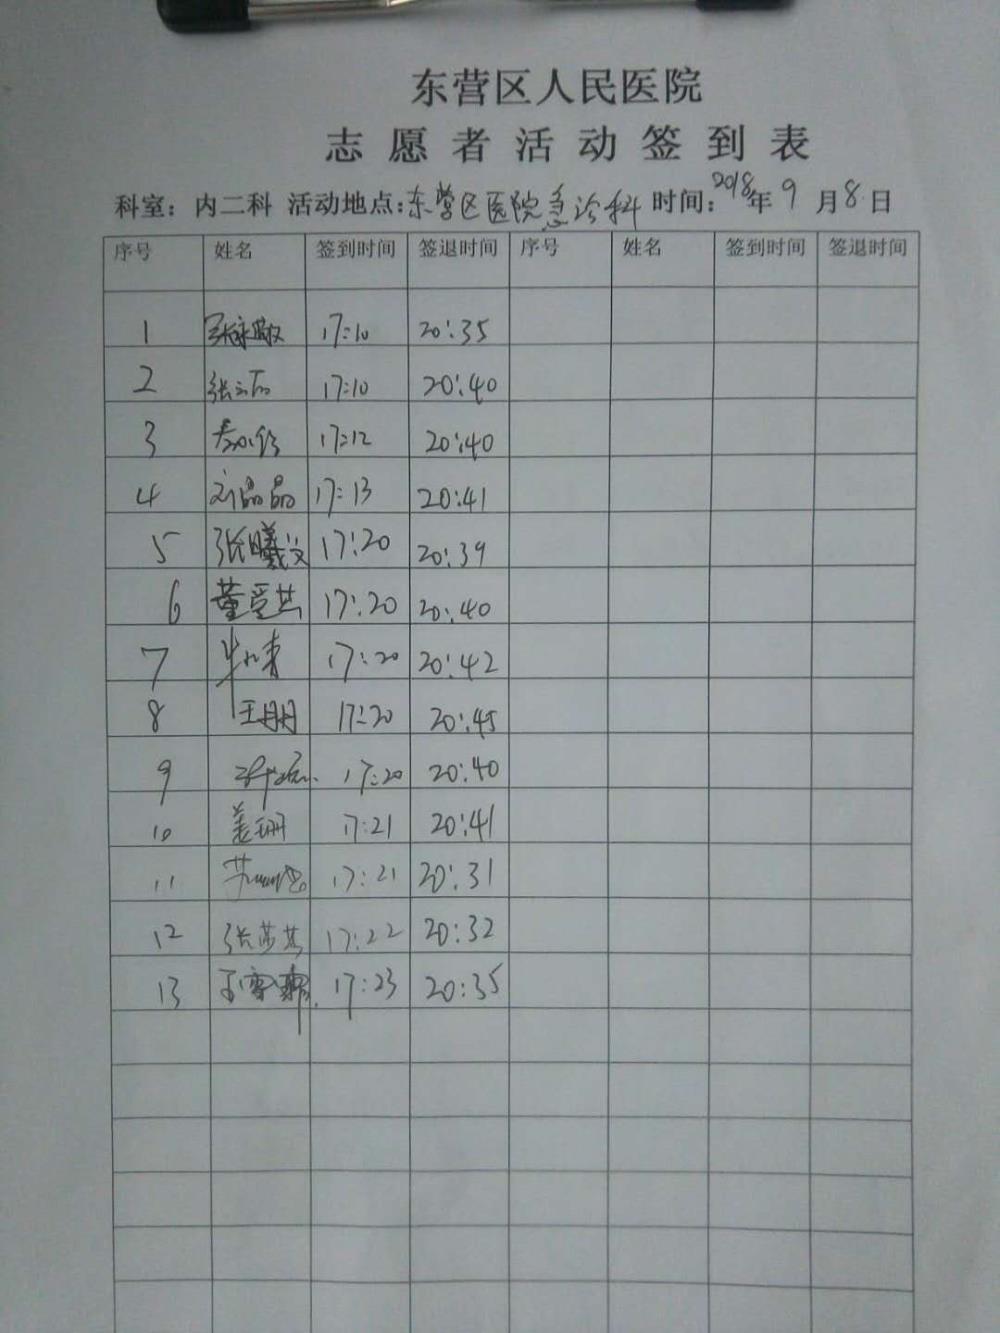 东营区人民医院
志愿者活动签到表
科室：内二科 活动地点：东营区医院急诊科 时间：2018年9月8日
序号 姓名 签到时间 签退时间 序号 姓名 签到时间 签退时间
1 17:10 20:35
2 17:10 20:40
3 17:12 20:40
4 刘晶晶 17:13 20:41
5 张曦文 17:20 20:39
6 17:20 20:40
7 17:20 20:42
8 王朋朋 17:20 20:45
9 17:20 20:40
10 姜珊 17:21 20:41
11 17:21 20:31
12 张莎莎 17:22 20:32
13 17:23 20:35